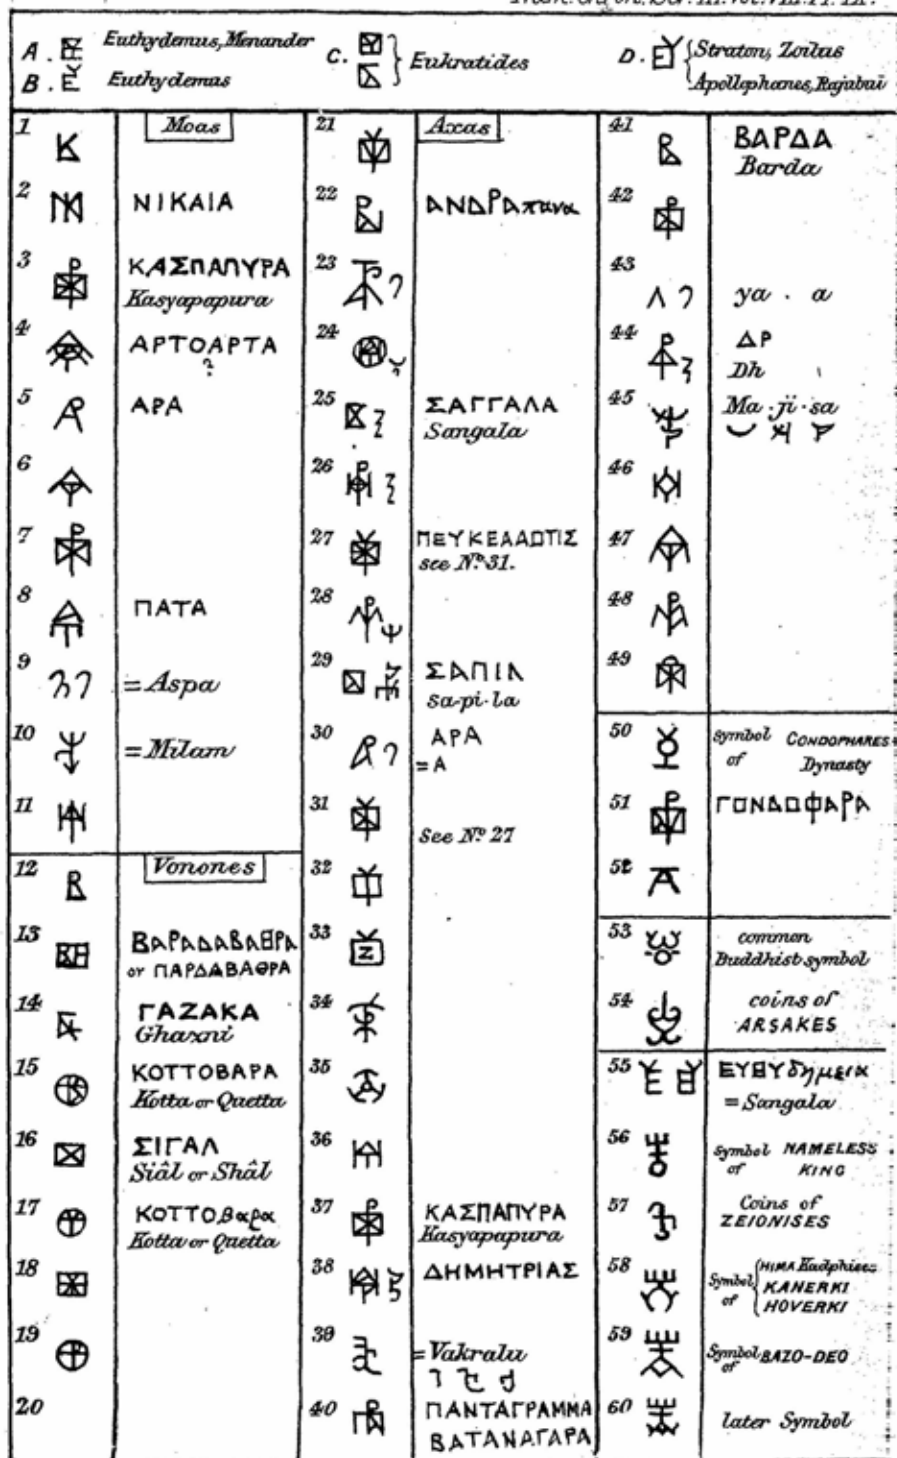 Num. Chron. Ser. III. Vol. VIII. Pl. IX.
A. Euthydemus, Menander
B. Euthydemus
C. Eukratides
D. Straton, Zoilus
Apollophanes, Rajubul
1 Moas
2 ΝΙΚΑΙΑ
3 ΚΑΣΠΑΠΥΡΑ
Kasyapapura
4 ΑΡΤΟΑΡΤΑ
?
5 ΑΡΑ
6
7
8 ΠΑΤΑ
9 = Aspa
10 = Milam
11
12 Vonones
13 ΒΑΡΑΔΑΒΑΘΡΑ
or ΠΑΡΔΑΒΑΘΡΑ
14 ΓΑΖΑΚΑ
Ghazni
15 ΚΟΤΤΟΒΑΡΑ
Kotta or Quetta
16 ΣΙΓΑΛ
Siâl or Shâl
17 ΚΟΤΤΟβαρα
Kotta or Quetta
18
19
20
21 Axas
22 ΑΝΔΡΑπανα
23
24
25 ΣΑΓΓΑΛΑ
Sangala
26
27 ΠΕΥΚΕΛΑΩΤΙΣ
see No. 31.
28
29 ΣΑΠΙΛ
sa-pi-la
30 ΑΡΑ
= A
31 See No 27
32
33
34
35
36
37 ΚΑΣΠΑΠΥΡΑ
Kasyapapura
38 ΔΗΜΗΤΡΙΑΣ
39 = Vakralu
40 ΠΑΝΤΑΓΡΑΜΜΑ
ΒΑΤΑΝΑΓΑΡΑ
41 ΒΑΡΔΑ
Barda
42
43 ya . a
44 ΔΡ
Dh
45 Ma . ji . sa
46
47
48
49
50 symbol of CONDOPHARES
Dynasty
51 ΓΟΝΔΩΦΑΡΑ
52
53 common
Buddhist symbol
54 coins of
ARSAKES
55 ΕΥΘΥδημεια
= Sangala
56 Symbol of NAMELESS
KING
57 Coins of
ZEIONISES
58 Symbol of HIMA Kadphises
KANERKI
HOVERKI
59 Symbol of BAZO-DEO
60 later Symbol